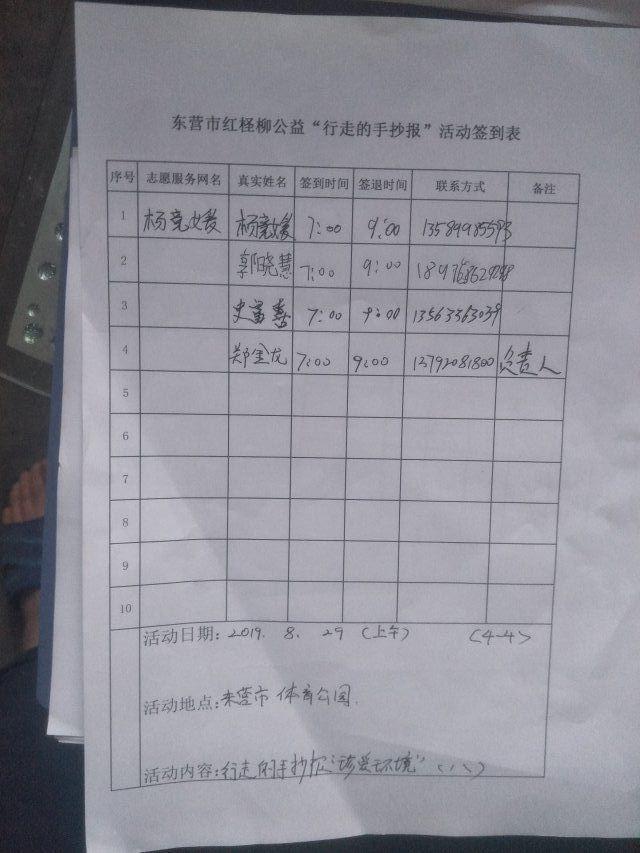 东营市红柽柳公益“行走的手抄报”活动签到表
序号 志愿服务网名 真实姓名 签到时间 签退时间 联系方式 备注
1 杨竞媛 杨竞媛 7:00 9:00
2 晓慧 7:00 9:00
3 史富春 7:00 9:00 13563363039
4 郑金龙 7:00 9:00 13792081800 负责人
5
6
7
8
9
10
活动日期: 2019. 8. 29 (上午) (4-4)
活动地点: 东营市 体育公园.
活动内容: 行走的手抄报“珍爱环境” (八)